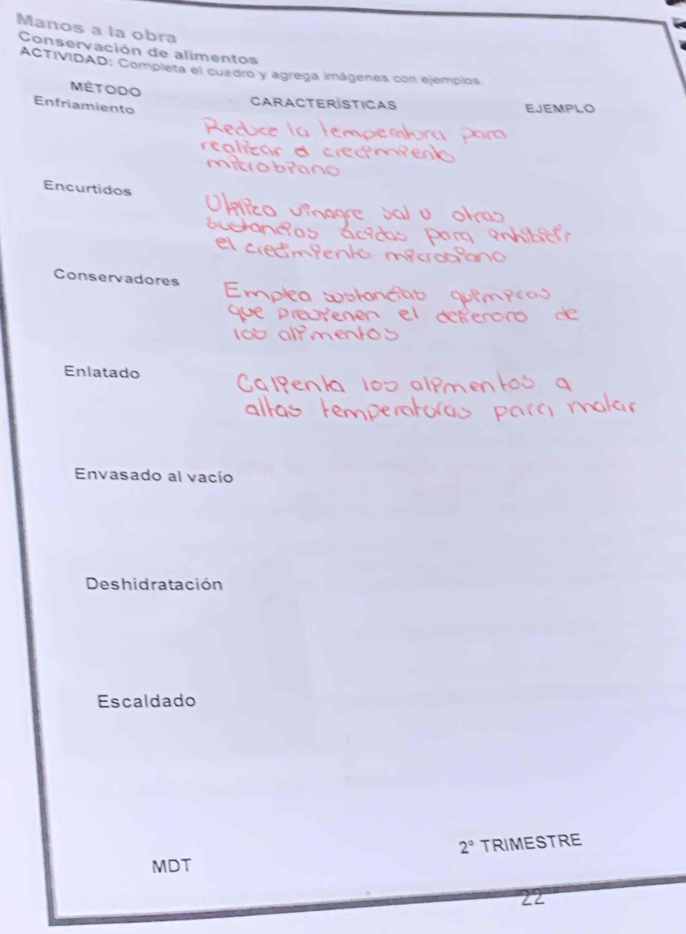 Manos a la obra
Conservación de alimentos
ACTIVIDAD: Completa el cuadro y agrega imágenes con ejemplos.
MÉTODO CARACTERÍSTICAS EJEMPLO
Enfriamiento
Reduce la temperatura para
realizar a crecimiento
microbiano
Encurtidos
Utiliza vinagre sal u otras
sustancias ácidas para inhibir
el crecimiento microbiano
Conservadores
Emplea sustancias químicas
que previenen el deterioro de
los alimentos
Enlatado
Calienta los alimentos a
altas temperaturas para matar
Envasado al vacío
Deshidratación
Escaldado
MDT 2° TRIMESTRE
22